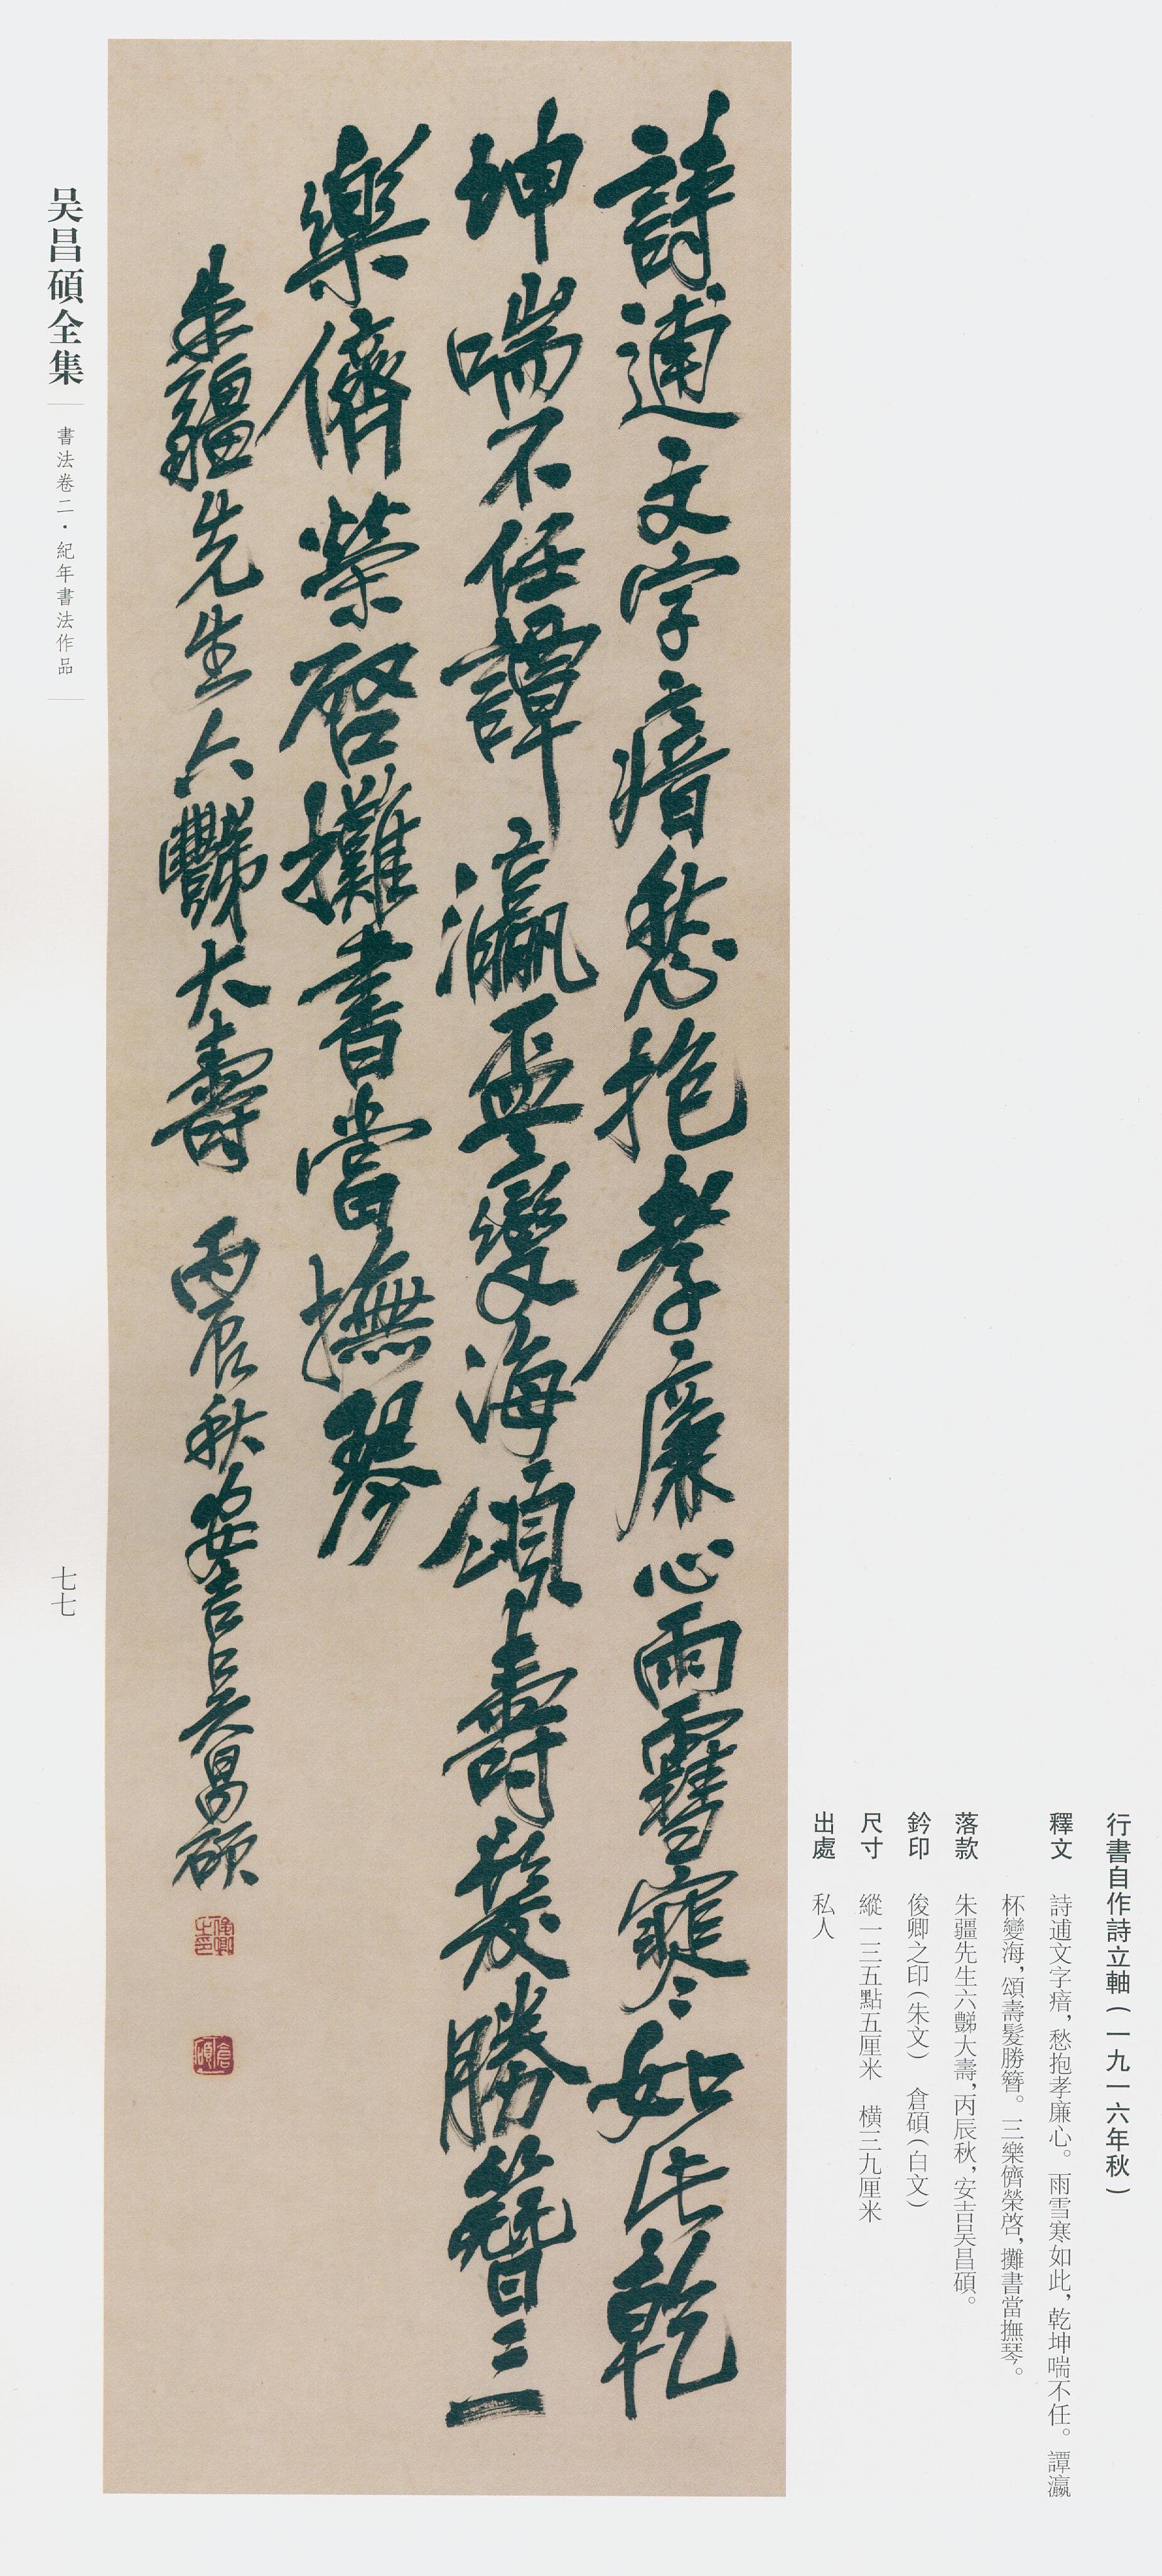 行書自作詩立軸(一九一六年秋)
釋文 詩逋文字瘖,愁抱孝廉心。雨雪寒如此,乾坤喘不任。譚瀛
杯變海,頌壽髮勝簪。三樂儕榮啓,攤書當撫琴。
落款 朱疆先生六豑大壽,丙辰秋,安吉吴昌碩。
鈐印 俊卿之印(朱文) 倉碩(白文)
尺寸 縱一三五點五厘米 横三九厘米
出處 私人
詩逋文字瘖愁抱孝廉心雨雪寒如此乾
坤喘不任譚瀛杯變海頌壽髮勝簪三
樂儕榮啓攤書當撫琴
朱疆先生六豑大壽 丙辰秋安吉吴昌碩
俊卿之印
倉碩
吴昌碩全集
書法卷二·紀年書法作品
七七